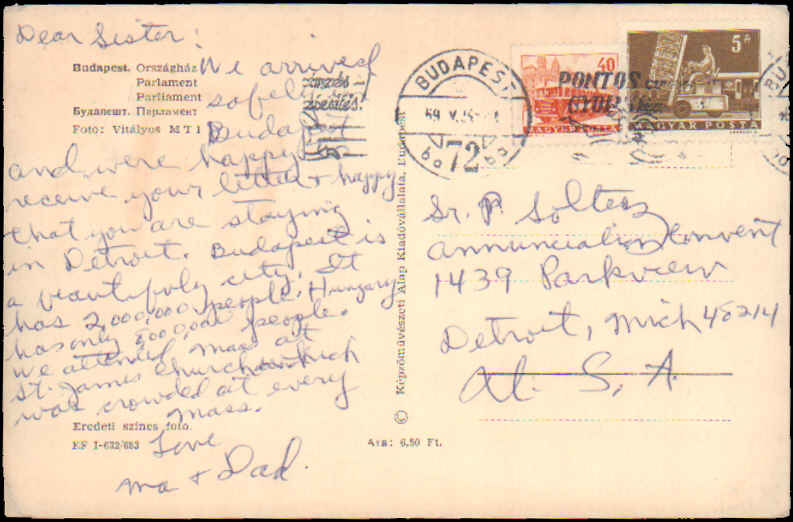 Dear Sister!
Budapest. Országház
Parlament
Parliament
Будапешт. Парламент
Foto: Vitályos MTI
We arrived
safely
Budapest
and were happy to
receive your letter + happy
that you are staying
in Detroit. Budapest is
a beautifuly city. It
has 2,000,000 people. Hungary
has only people.
We attend Mass at
St. James Church which
was crowded at every
Mass.
Love
Ma + Dad.
Eredeti színes foto.
EF I-632/683
Ára: 6,50 Ft.
© Képzőművészeti Alap Kiadóvállalata, Budapest
BUDAPEST
69 V.
72
PONTOS
40
MAGYAR POSTA
5 Ft
MAGYAR POSTA
BU
Sr. P. Soltesz
Annunciation Convent
1439 Parkview
Detroit, Mich 48214
U. S. A.